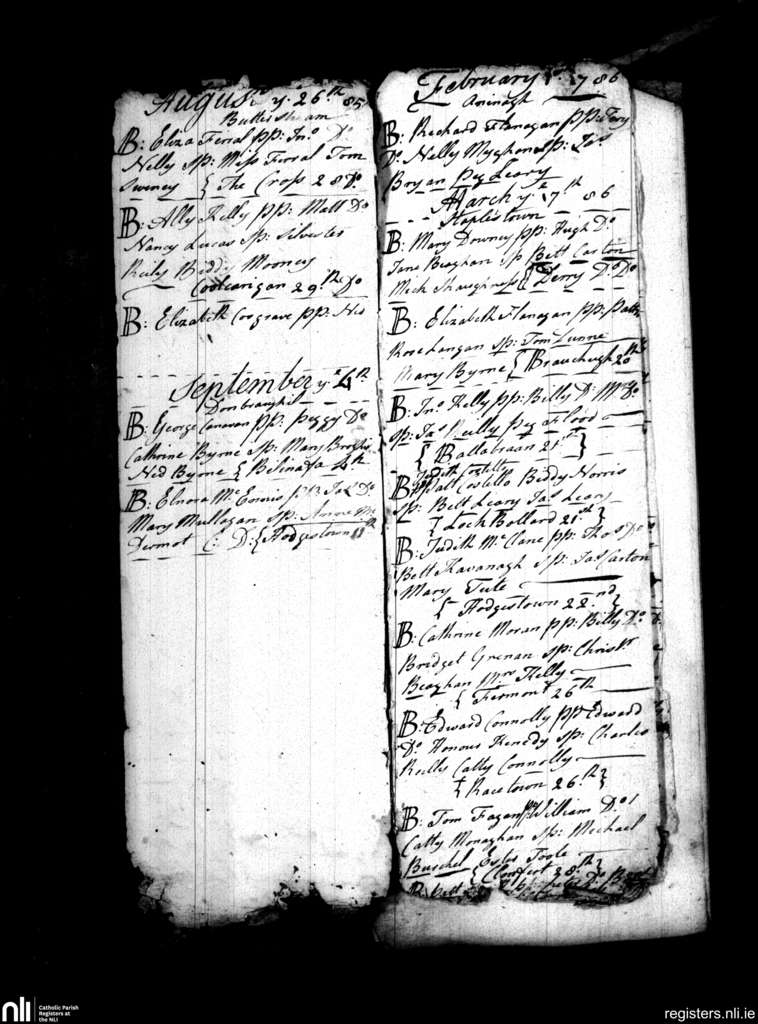 August ye 26th 85
Butlerstream
B: Eliza Ferral pp: Jno Do
Nelly sp: Miss Ferral Tom
Sweney { The Cross 28 Do
B: Ally Kelly pp: Matt Do
Nancy Lucas sp: Silvester
Rily Biddy Mooney
Coolcarigan 29th Do
B: Elizabeth Cosgrave pp:
September ye 4th
B: George Canavan pp: Peggy Do
Cathrine Byrne sp: Mary
Ned Byrne { 4th
B: Elnora Mc pp: Jas Do
Mary Mullagan sp: Mc
Dermot C: D: { Hodgestown 11th
February 1st 1786
B: Richard Flanagan pp: Tery
Do Nelly sp: Jas
Bryan Peg Leary
March ye 7th 86
Staplestown
B: Mary Downey pp: Hugh Do
Jane Beaghan sp Bett Carton
Mick { Derry Do Do
B: Elizabeth Flanagan pp: Patt
Rose Langan sp: Tom Lunne
Mary Byrne { 20th
B: Jno Kelly pp: Billy D: Do
sp: Jas Reilly Peg Flood
{ Ballabraan 21st }
Judith Costello
B: pp Patt Costello Biddy Norris
sp: Bett Leary Jas Leary
{ Loch Bollard 21st }
B: Judith Mc Clane pp: Thos Do
Bett Kavanagh sp: Jas Carton
Mary Tute
{ Hodgestown 22nd }
B: Cathrine Moran pp: Billy Do
Bridget Grenan sp: Christr
Beaghan Mrs Kelly
{ Fermont 26th
B: Edward Connolly pp Edward
Do Honour Kenedy sp: Charles
Reilly Catty Connolly
{ Racetown 26th }
B: Tom Fagan pp William Do
Catty Monaghan sp: Michael
Buschel Toole
{ 28th }
B: Bett
nli
Catholic Parish
Registers at
the NLI
registers.nli.ie